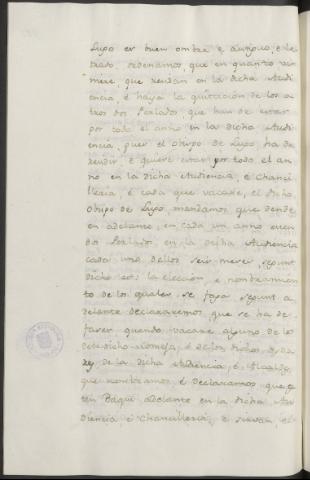 Lupo es buen ombre e antiguo, e le
trado, ordenamos, que en quanto vi
niere, que resida en la dicha Audi
encia, e haya la quitación de los o
tros dos Perlados, que han de estar
por todo el anno en la dicha Audi
encia, pues el Obispo de Lupo, ha de
residir, e quiere estar por todo el an
no en la dicha Audiencia, e Chanci
lleria, e cada que vacare, el dicho
Obispo de Lupo, mandamos que dende
en adelante, en cada un anno esten
dos Perlados, en la dicha Audiencia
cada uno dellos seis meses, segunt
dicho es: la elección, e nombramien
to de los quales se faga segunt a
delante declararemos, que se ha de
facer quando vacare alguno de los
del dicho Consejo, e de los dichos Oydo
res de la dicha Audiencia, e Alcaldes,
que nombramos, e declaramos que es
ten daqui adelante en la dicha Au
diencia, e Chancilleria, e sirvan, el